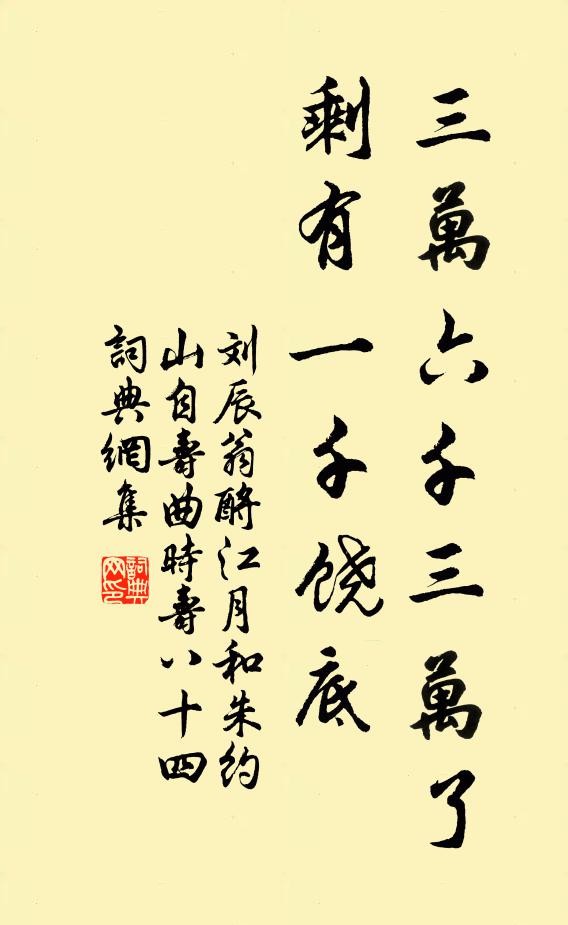 三萬六千三萬了
剩有一千饶底
刘辰翁酹江月和朱约
山自壽曲時壽八十四
詞典網集
詞典
网印